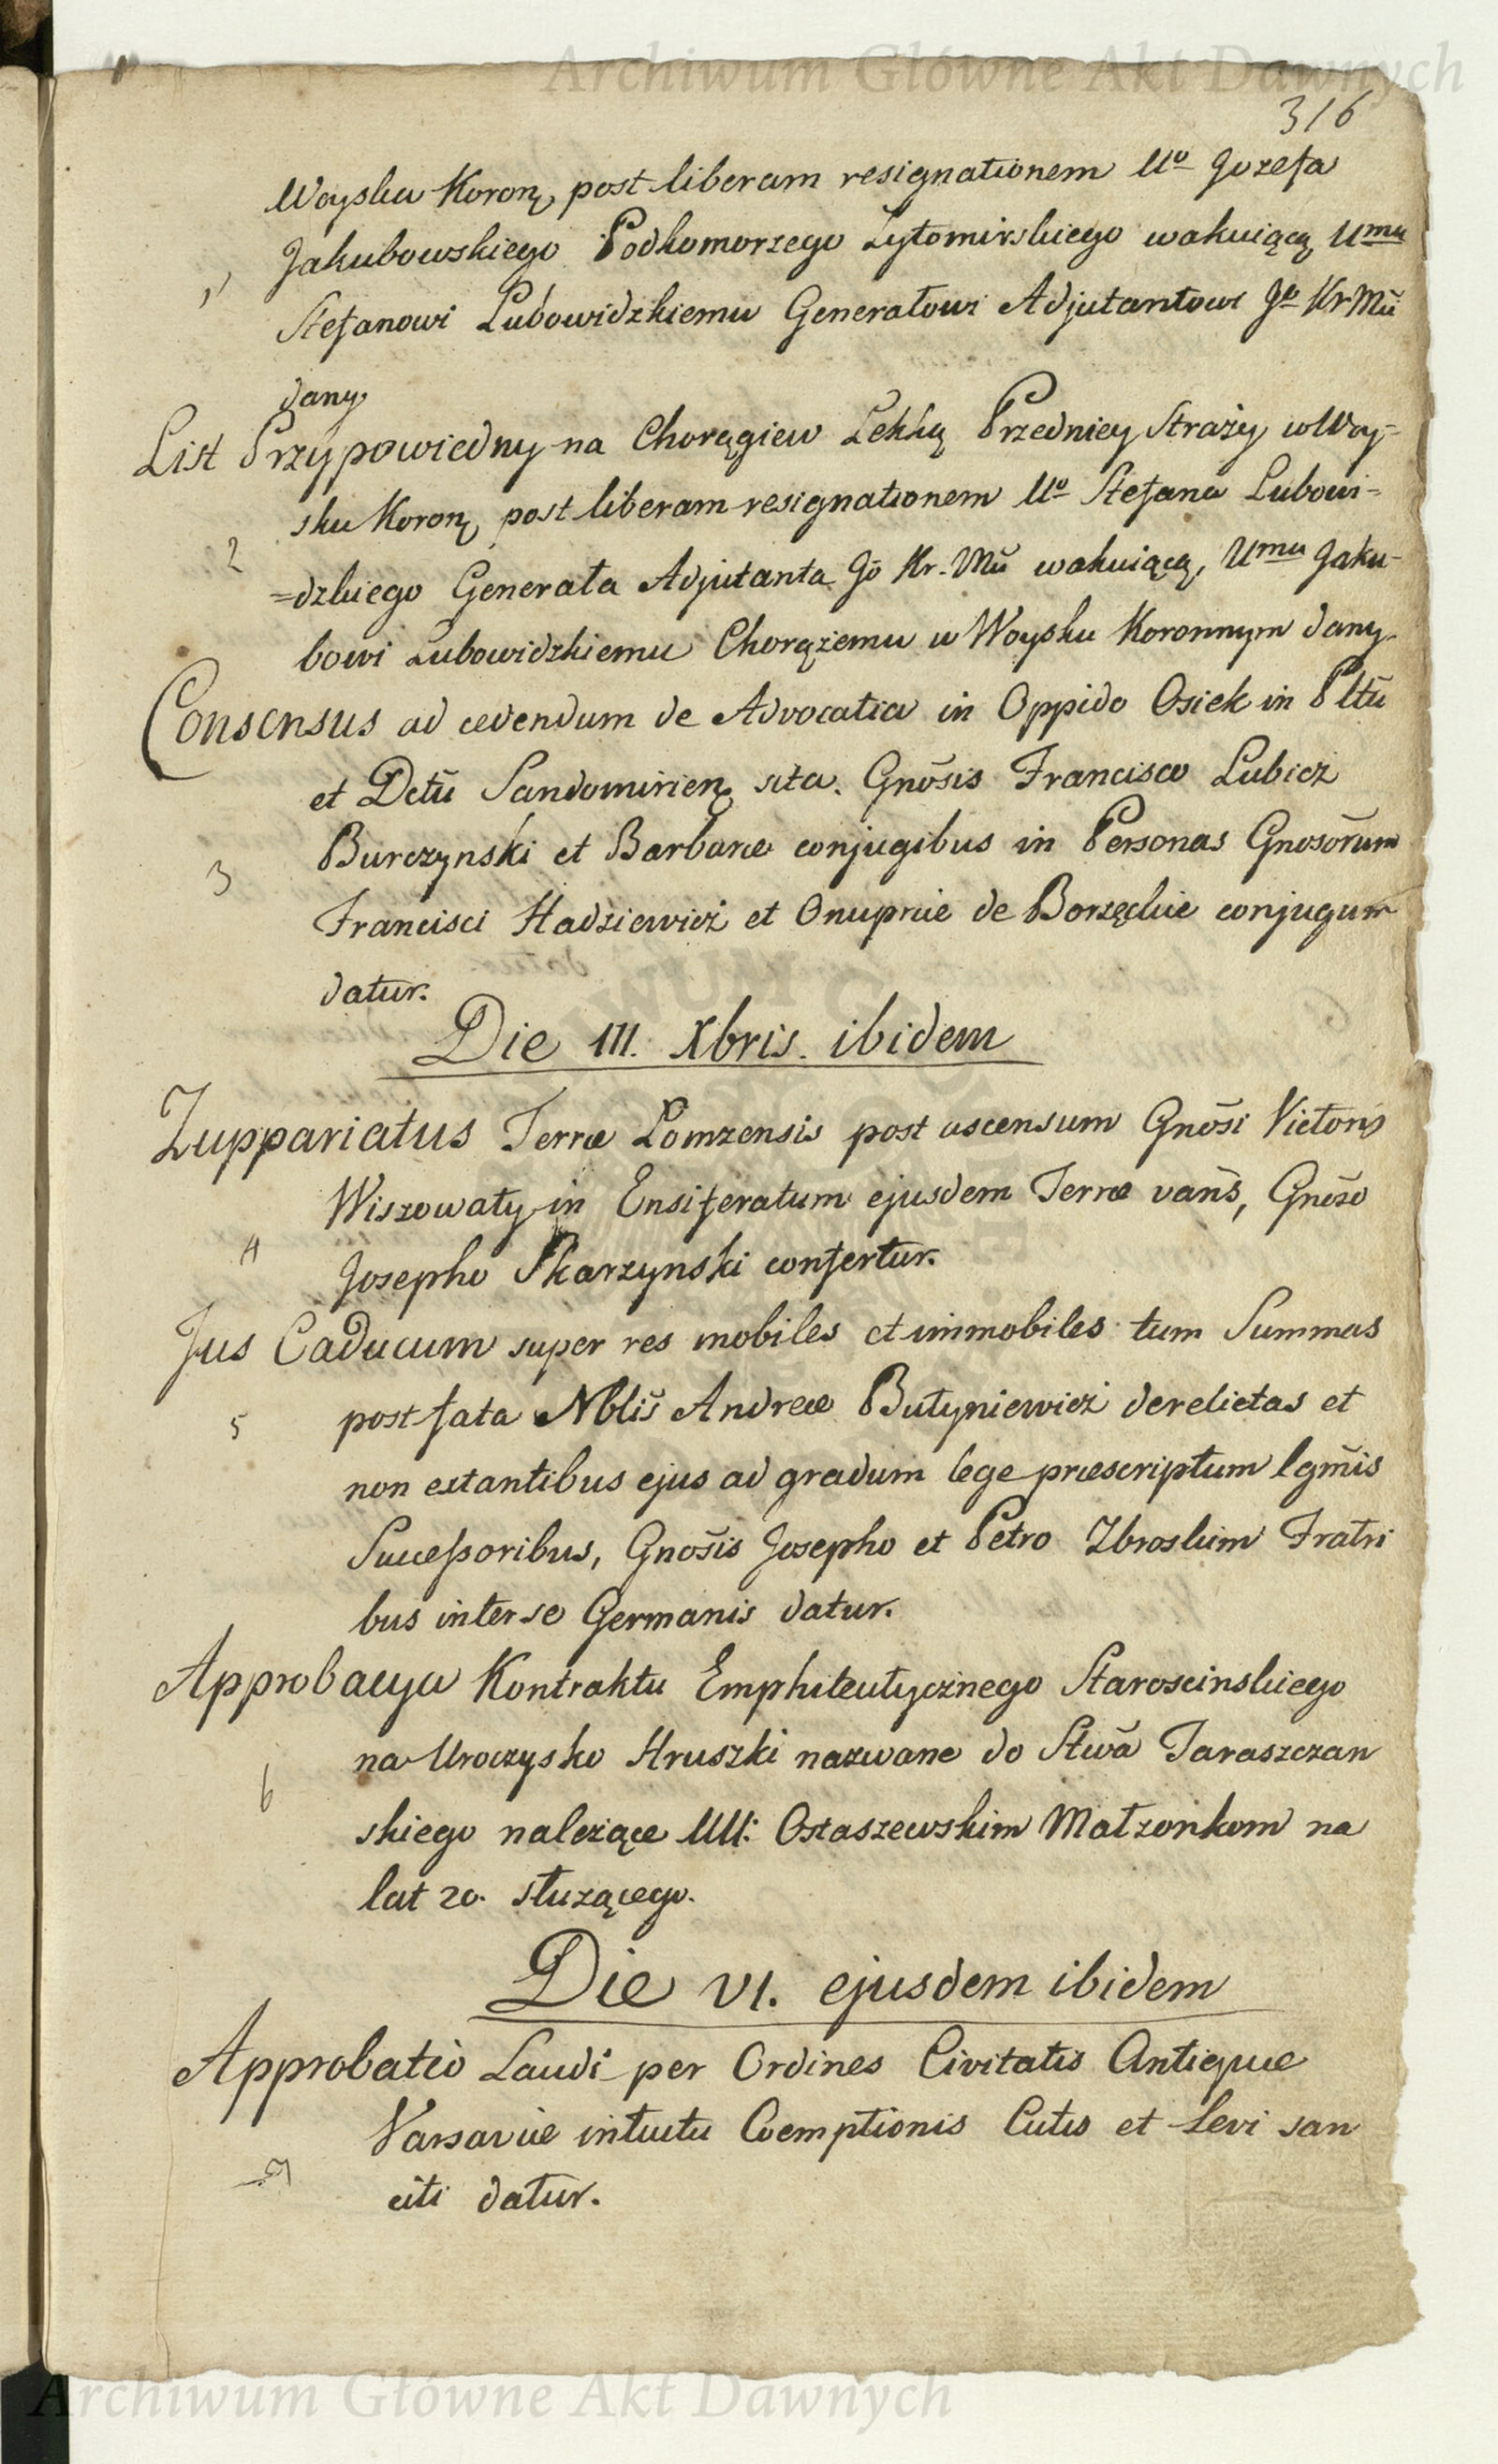 Archiwum Główne Akt Dawnych
316
Woysku Koronę post liberam resignationem Uo Jozefa
Jakubowskiego Podkomorzego Zytomirskiego wakuiącą Umu
1
Stefanowi Lubowidzkiemu Generałowi Adjutantowi Jo Kr Mū
dany
List Przypowiedny na Chorągiew Lekką Przedniey Straży w Woy=
sku Koronę post liberam resignationem Uo Stefana Lubowi=
2
=dzkiego Generała Adjutanta Jō Kr. Mū wakuiącą, Umu Jaku=
bowi Lubowidzkiemu Chorążemu w Woysku Koronnym dany.
Consensus ad cedendum de Advocatia in Oppido Osiek in Pltū
et Dctū Sandomirienę sita. Gnōsis Francisco Lubicz
Burczynski et Barbaræ conjugibus in Personas Gnosōrum
3
Francisci Hadziewicz et Onupriæ de Borzęckie conjugum
datur.
Die III. Xbris. ibidem
Zuppariatus Terræ Lomzensis post ascensum Gnōsi Victoris
Wiszowaty in Ensiferatum ejusdem Terræ vans̄, Gnōso
4
Josepho Skarzynski confertur.
Jus Caducum super res mobiles et immobiles tum Summas
post fata Nblis̄ Andreæ Butyniewicz derelictas et
5
non extantibus ejus ad gradum lege præscriptum lgm̄is
Successoribus, Gnos̄is Josepho et Petro Zbroskim Fratri
bus inter se Germanis datur.
Approbacya Kontraktu Emphiteutycznego Staroscinskiego
na Uroczysko Hruszki nazwane do Stwā Taraszczan
6
skiego nalezące UU: Ostaszewskim Małzonkom na
lat 20. słuzącego.
Die VI. ejusdem ibidem
Approbatio Laudi per Ordines Civitatis Antiquæ
Varsaviæ intuitu Coemptionis Cutis et Sevi san
7
citi datur.
Archiwum Główne Akt Dawnych